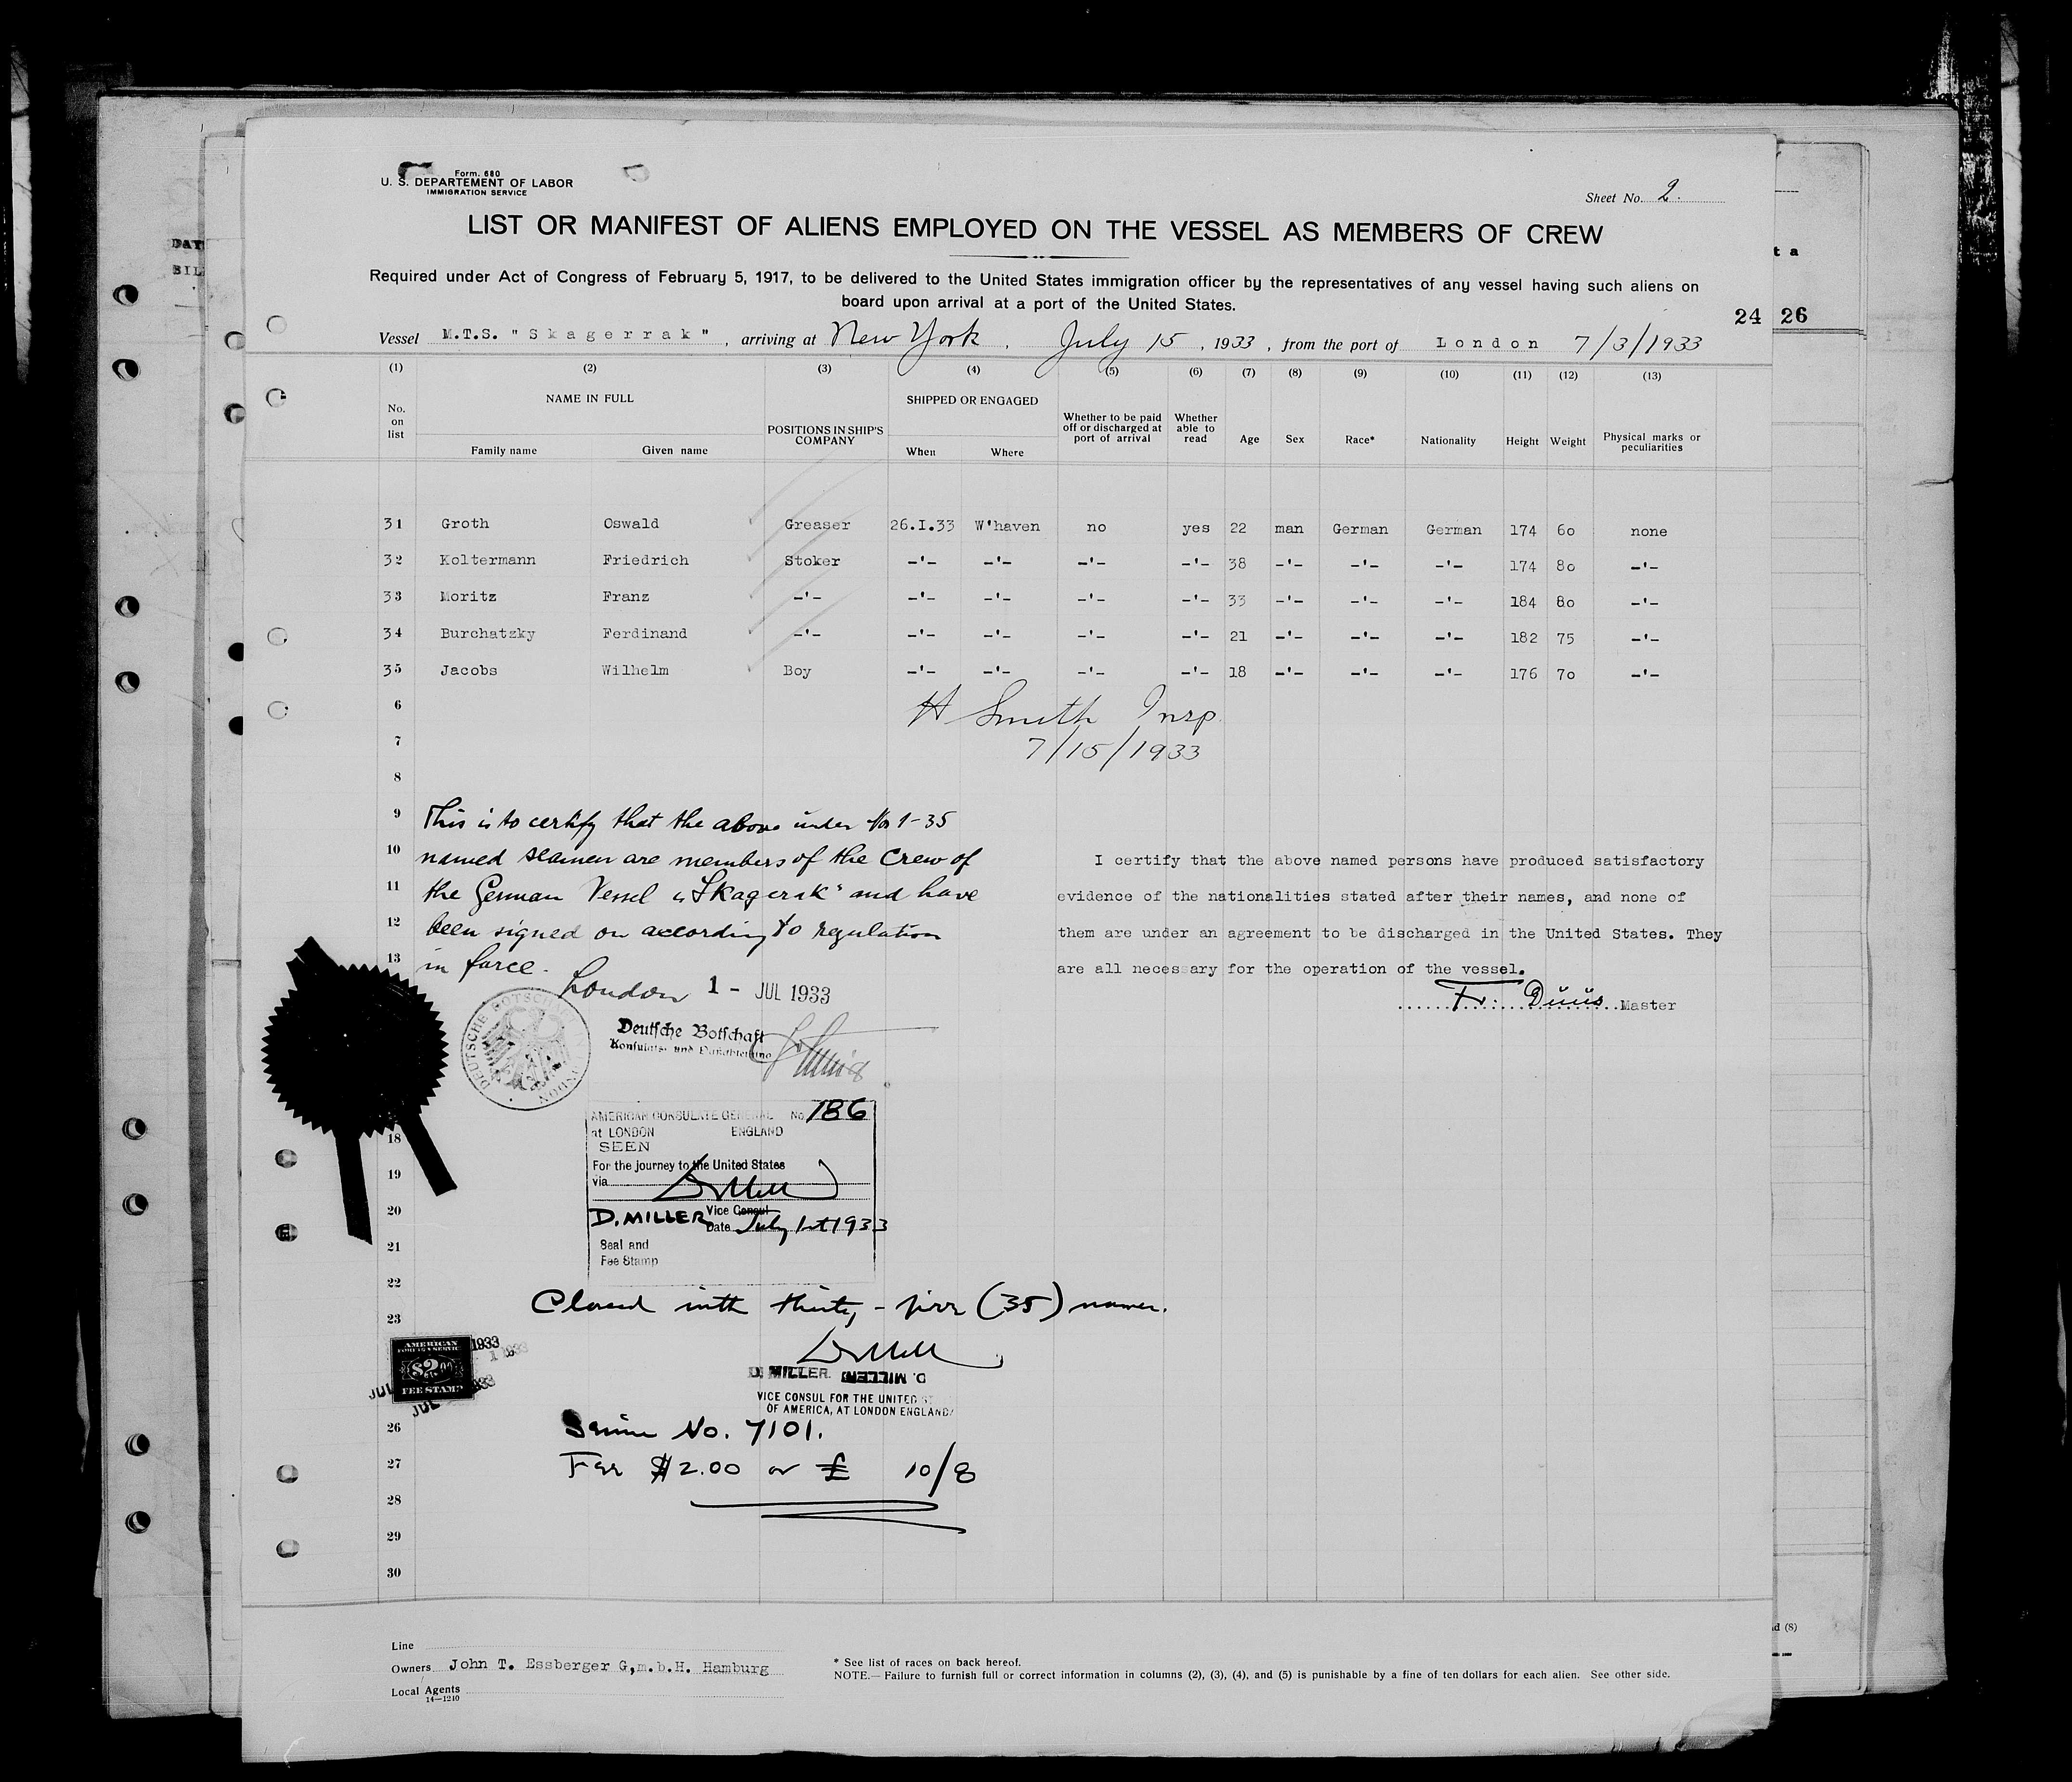 Form. 680
U. S. DEPARTEMENT OF LABOR
IMMIGRATION SERVICE
Sheet No. 2.
LIST OR MANIFEST OF ALIENS EMPLOYED ON THE VESSEL AS MEMBERS OF CREW
Required under Act of Congress of February 5, 1917, to be delivered to the United States immigration officer by the representatives of any vessel having such aliens on
board upon arrival at a port of the United States.
24 26
Vessel M.T.S. "Skagerrak", arriving at New York, July 15, 1933, from the port of London 7/3/1933
(1) (2) (3) (4) (5) (6) (7) (8) (9) (10) (11) (12) (13)
No. on list NAME IN FULL Family name Given name POSITIONS IN SHIP'S COMPANY SHIPPED OR ENGAGED When Where Whether to be paid off or discharged at port of arrival Whether able to read Age Sex Race* Nationality Height Weight Physical marks or peculiarities
31 Groth Oswald Greaser 26.I.33 W'haven no yes 22 man German German 174 60 none
32 Koltermann Friedrich Stoker -'- -'- -'- -'- 38 -'- -'- -'- 174 80 -'-
33 Moritz Franz -'- -'- -'- -'- -'- 33 -'- -'- -'- 184 80 -'-
34 Burchatzky Ferdinand -'- -'- -'- -'- -'- 21 -'- -'- -'- 182 75 -'-
35 Jacobs Wilhelm Boy -'- -'- -'- -'- 18 -'- -'- -'- 176 70 -'-
6
H Smith Insp.
7
7/15/1933
8
9 This is to certify that the above under Nos 1-35
10 named seamen are members of the Crew of
11 the German Vessel "Skagerak" and have
12 been signed on according to regulation
13 in force.
I certify that the above named persons have produced satisfactory
evidence of the nationalities stated after their names, and none of
them are under an agreement to be discharged in the United States. They
are all necessary for the operation of the vessel.
Fr. Düüs Master
London 1 - JUL 1933
DEUTSCHE BOTSCHAFT LONDON
Deutsche Botschaft
AMERICAN CONSULATE GENERAL No. 186
at LONDON ENGLAND
SEEN
18
For the journey to the United States
19
via
20
D. MILLER Vice Consul
Date July 1st 1933
21
Seal and
Fee Stamp
22
Closed with thirty-five (35) names.
23
AMERICAN
FOREIGN SERVICE
$2.00
FEE STAMP
1933
1 1933
JUL 1933
JUL
D. MILLER. D. MILLER
VICE CONSUL FOR THE UNITED ST
OF AMERICA, AT LONDON ENGLAND.
26 Service No. 7101.
27 Fee $2.00 or £ 10/8
28
29
30
Line
Owners John T. Essberger G,m.b.H. Hamburg
Local Agents
14—1240
* See list of races on back hereof.
NOTE.—Failure to furnish full or correct information in columns (2), (3), (4), and (5) is punishable by a fine of ten dollars for each alien. See other side.
DAY
SIL
t a
d (8)